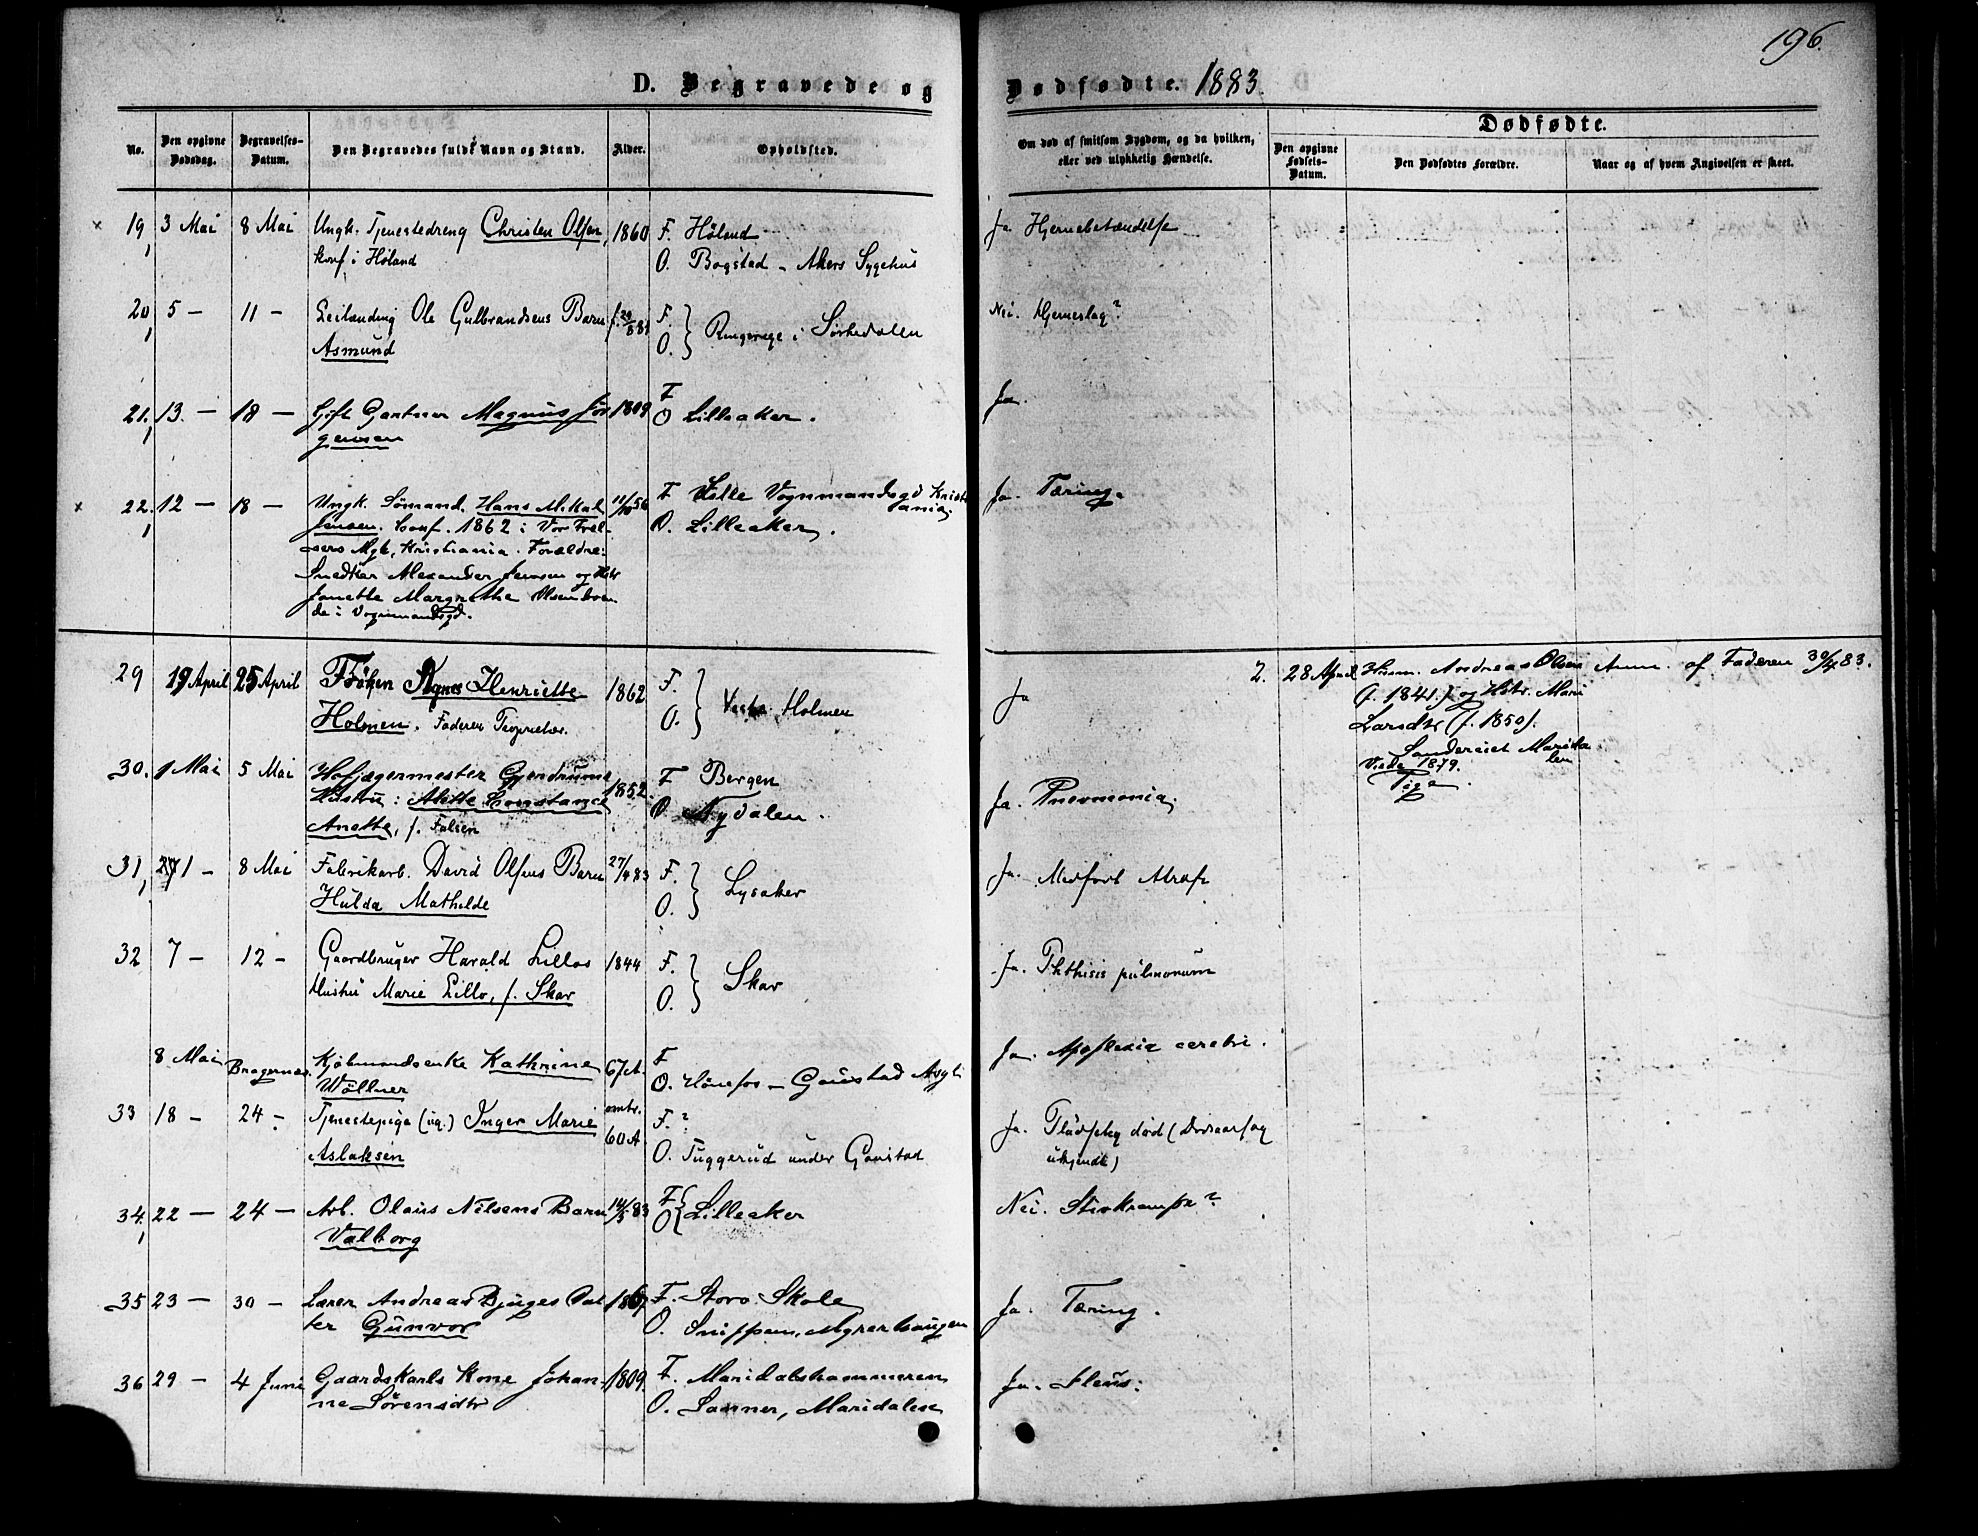 196.
D. Begravede og Dødfødte. 1883.
No.
Den opgivne Dødsdag.
Begravelses-Datum.
Den Begravedes fulde Navn og Stand.
Alder.
Opholdsted.
Om død af smitsom Sygdom, og da hvilken,
eller ved ulykkelig Hændelse.
Dødfødte.
Den opgivne Fødsels-Datum.
Den Dødfødtes Forældre.
Naar og af hvem Angivelsen er skeet.
19, 3 Mai 8 Mai Ungk. Tjenestedreng Christen Olsen, 1860 F. Høland Ja Hjernebetændelse
konf. i Høland O. Bogstad - Akers Sygehus
20, 5 - 11 - Leilænding Ole Gulbrandsens Barn F. Nei. Hjerneslag?
Asmund O. i Sørkedalen
21. 13. - 18 - Gift Gartner Magnus Jør- 1809 F Ja.
gensen O Lilleaker.
22. 12 - 18 - Ungk. Sømand. Hans Mikal 11/10 56 F Lille Vognmandsgd Kristi- Ja. Tæring.
Jensen. Conf. 1862 i Vor Frel- ania. O. Lilleaker.
sers Mgk, Kristiania. Forældre:
Snedker Alexander Jensen og Hstr
Janette Margrethe Olsen boen-
de i Vognmandsgd.
29 19 April 25 April Frøken Agnes Henriette 1862 F. Ja
Holmen. Faderen Proprietær. O. Vestre Holmen
2. 28 April Husm. Andreas Olsen Anm. af Faderen 30/4 83.
(f. 1841.) og Hstr. Marie
Larsdtr (f. 1850).
Sandereiet Marida-
len
Viede 1879.
Pige.
30. 1 Mai 5 Mai Hofjægermester Gjendrums 1852. F Bergen Ja. Pneumonia.
Hustru: Alette Constance O. Nydalen.
Anette, f. Falsen
31, 1 - 8 Mai Fabrikarb. David Olsens Barn 27/4 83 F. Ja. Medfødt Atrofi
Hulda Mathilde O. Lysaker
32 7 - 12 - Gaardbruger Harald Lillos 1844 F. Ja. Phthisis pulmonum
Hustru Marie Lillo, f. Skar O. Skar
8 Mai Bragernes. Kjøbmandsenke Kathrine 67 A F Ja. Apoplexia cerebri.
Wøllner O. Hønefos - Gaustad Asyl
33 18 - 24 - Tjenestepige (ug.) Inger Marie omtr. 60 A F. ? Ja. Pludselig død (Dødsaarsag
Aslaksen O. Tuggerud under Gaustad ukjendt)
34. 22 - 24 - Arb. Olaus Nilsens Barn 14/5 83 F Nei. Stivkrampe?
Valborg O Lilleaker
35 23 - 30 - Lærer Andreas Bjuges Dat- F. Storo Skole Ja. Tæring.
ter Gunvor O. Snippen, Myrerhaugen
36 29 - 4 Juni Gaardskarls Kone Johan- 1809. F. Maridalshammeren Ja. Ileus.
ne Sørensdtr O. Sanner, Maridalen